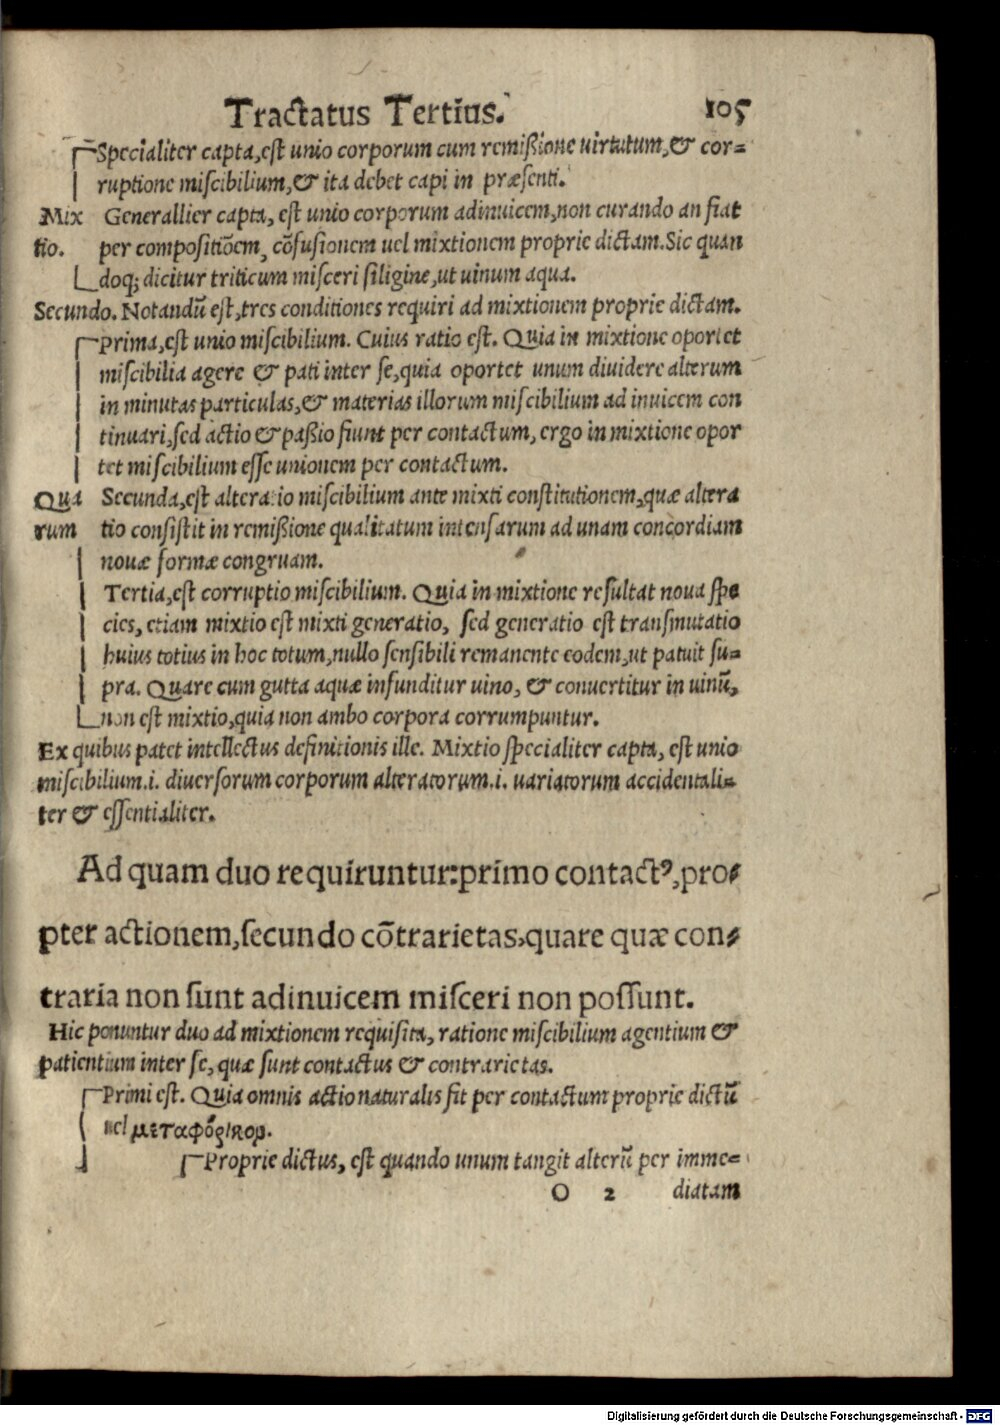 Tractatus Tertius. 105
Specialiter capta, est unio corporum cum remißione uirtutum, & cor-
ruptione miscibilium, & ita debet capi in præsenti.
Mix Generallier capta, est unio corporum adinuicem, non curando an fiat
tio. per compositiõem, cõfusionem uel mixtionem proprie dictam. Sic quan
doq; dicitur triticum misceri siligine, ut uinum aqua.
Secundo. Notandũ est, tres conditiones requiri ad mixtionem proprie dictam.
Prima, est unio miscibilium. Cuius ratio est. Quia in mixtione oportet
miscibilia agere & pati inter se, quia oportet unum diuidere alterum
in minutas particulas, & materias illorum miscibilium ad inuicem con
tinuari, sed actio & paßio fiunt per contactum, ergo in mixtione opor
tet miscibilium esse unionem per contactum.
Qua Secunda, est alteratio miscibilium ante mixti constitutionem, quæ altera
rum tio consistit in remißione qualitatum intensarum ad unam concordiam
nouæ formæ congruam.
Tertia, est corruptio miscibilium. Quia in mixtione resultat noua spe
cies, etiam mixtio est mixti generatio, sed generatio est transmutatio
huius totius in hoc totum, nullo sensibili remanente eodem, ut patuit su-
pra. Quare cum gutta aquæ infunditur uino, & conuertitur in uinũ,
non est mixtio, quia non ambo corpora corrumpuntur.
Ex quibus patet intellectus definitionis ille. Mixtio specialiter capta, est unio
miscibilium .i. diuersorum corporum alteratorum .i. uariatorum accidentali-
ter & essentialiter.
Ad quam duo requiruntur: primo contactꝰ, pro-
pter actionem, secundo cõtrarietas, quare quæ con-
traria non sunt adinuicem misceri non possunt.
Hic ponuntur duo ad mixtionem requisita, ratione miscibilium agentium &
patientium inter se, quæ sunt contactus & contrarietas.
Primi est. Quia omnis actio naturalis fit per contactum proprie dictũ
uel μεταφόρικον.
Proprie dictus, est quando unum tangit alterũ per imme-
O 2 diatam
Digitalisierung gefördert durch die Deutsche Forschungsgemeinschaft - DFG